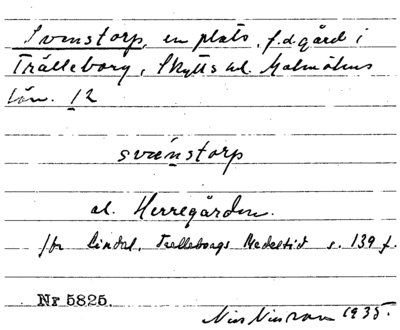 Svenstorp, en plats, f.d. gård i
Trälleborg, Skytts hd. Malmöhus
län. 12
svænstorp
el. Herregården.
jfr Lindal, Trelleborgs Medeltid s. 139 f.
Nr 5825.
1935.